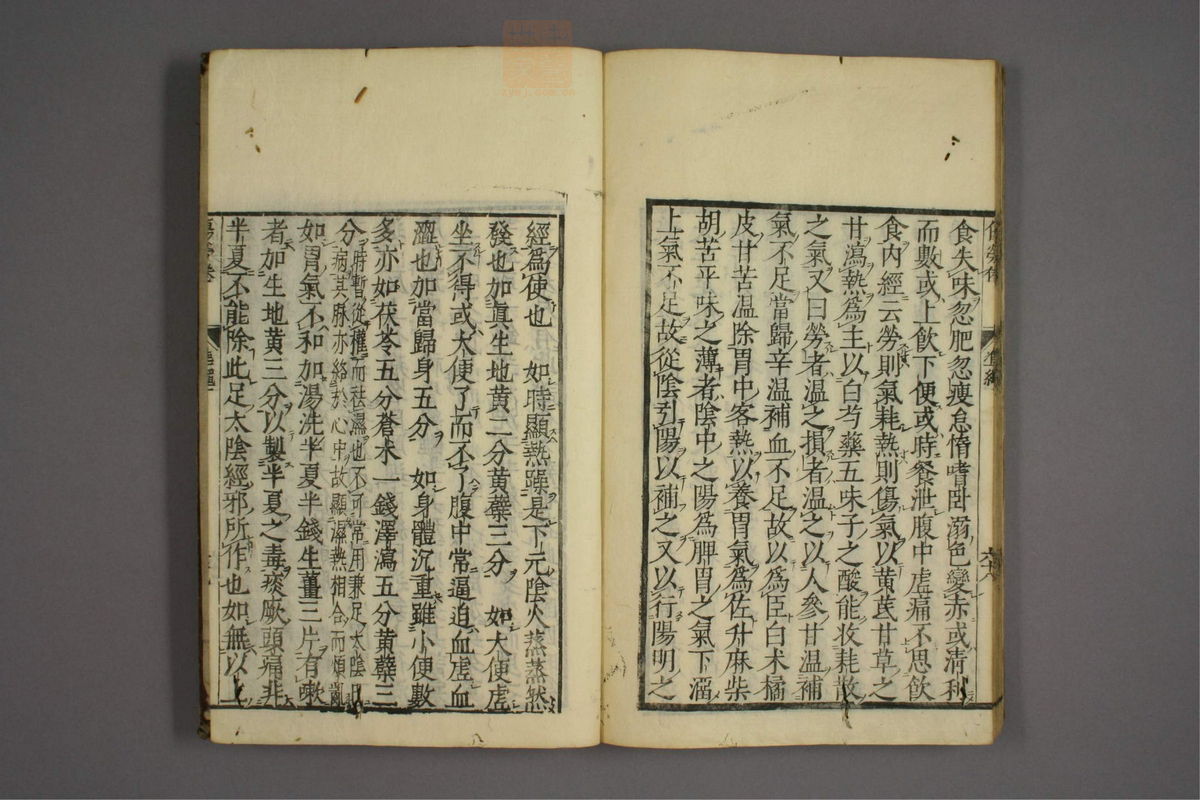 食失味忽肥忽瘦怠惰嗜卧溺色變赤或清利
而數或上飲下便或時飡泄腹中虛痛不思飲
食內經云勞則氣耗熱則傷氣以黃芪甘草之
甘瀉熱爲主以白芍藥五味子之酸能收耗散
之氣又曰勞者溫之損者溫之以人參甘溫補
氣不足當歸辛溫補血不足故以爲臣白朮橘
皮甘苦溫除胃中客熱以養胃氣爲佐升麻柴
胡苦平味之薄者陰中之陽爲脾胃之氣下溜
上氣不足故從陰引陽以補之又以行陽明之
經爲使也 如時顯熱躁是下元陰火蒸蒸然
發也加眞生地黃二分黃蘗三分 如大便虛
坐不得或大便了而不了腹中常逼迫血虛血
澀也加當歸身五分 如身體沉重雖小便數
多亦如茯苓五分蒼朮一錢澤瀉五分黃蘗三
分
時暫從權而祛濕也不可常用兼足太陰
病其脉亦絡於心中故顯濕熱相合而煩亂
如胃氣不和加湯洗半夏半錢生薑三片有嗽
者加生地黃三分以製半夏之毒痰厥頭痛非
半夏不能除此足太陰經邪所作也如無以上